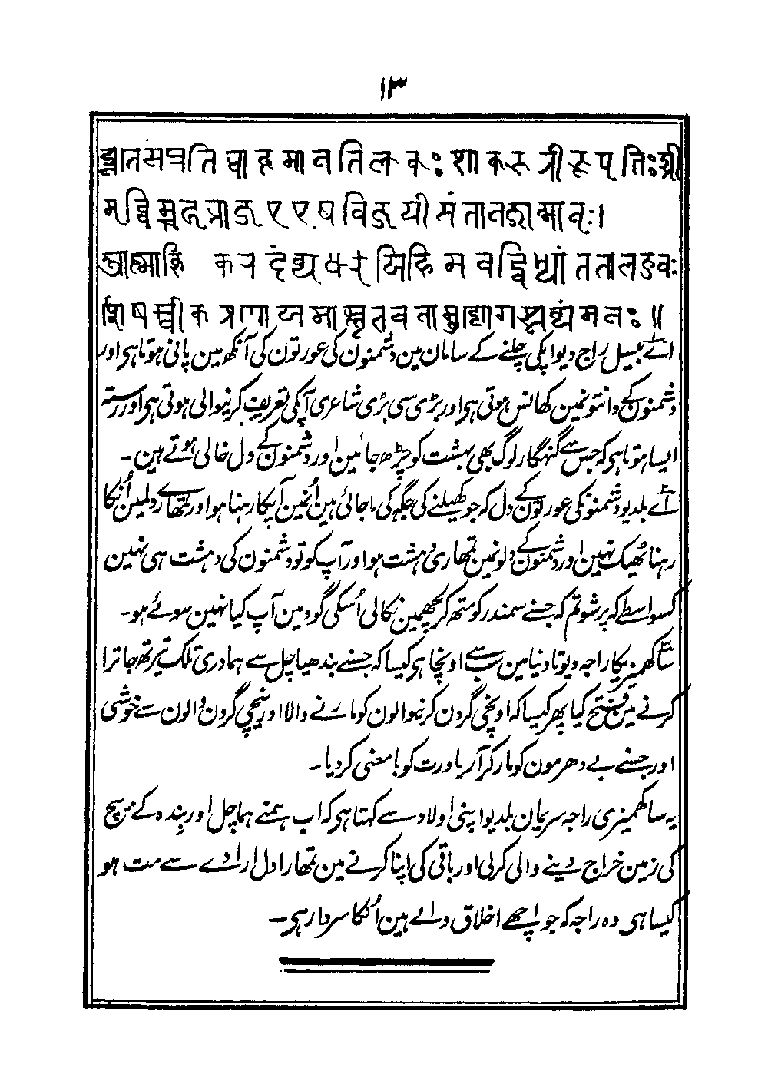 ۱۳
ब्रूातसंप्रति चाहमानतिलकः शाकम्भरीभूपतिः श्री
मद्विग्रहराज एष विजयी संतानजानात्मनः।
अस्माभिः करदं व्यधायि हिमवद्विन्ध्यांतरालंभुवः
शेषस्वीकरणाय मास्तु भवतामुद्योगशून्यं मनः॥
اے بیسل راج دیو آپکی چلنے کے سامان مین دشمنون کی عورتون کی آنکھ مین پانی ہوتا ہی اور
دشمنون کے دانتونمین گھانس ہوتی ہی اور بڑی سی بڑی شاعری آپکی تعریف کرنیوالی ہوتی ہی اور رستہ
ایسا ہوتا ہی کہ جس سے گنہگار لوگ بھی بہشت کو چڑھ جائین اور دشمنون کے دل خالی ہوتے ہین۔
اے بلدیو دشمنونکی عورتون کے دل کہ جو کھیلنے کی جگہ کی جائی ہین اُنھین آپکا رہنا ہو اور تمھارے دلمین اُنکا
رہنا ٹھیک نہین اور دشمنون کے دلونمین تمھاری دہشت ہو اور آپ کو تو دشمنون کی دہشت ہی نہین
کسواسطے کہ پرشوتم کہ جسنے سمندر کو متھ کر لچھمین نکالی اُسکی گود مین آپ کیا نہین سوئے ہو۔
ساکھمبر کا راجہ دیوتا دنیا مین سب سے اونچا ہی کیسا کہ جسنے بندھیاچل سے ہمادری تلک تیرتھ جاترا
کرنے مین فتح کیا پھر کیسا کہ اونچی گردن کرنیوالون کو مارنے والا اور نیچی گردن والون سے خوشی
اور جسنے بے دھرمون کو مار کر آریاورت کو با معنی کر دیا۔
یہ ساکھمبری راجہ سریمان بلدیو اپنی اولاد سے کہتا ہی کہ اب ہمنے ہماچل اور بندہ کے بیچ
کی زمین خراج دینے والی کرلی اور باقی کی اپنا کرنے مین تمھارا دل ارادے سے مت ہو
کیسا ہی وہ راجہ کہ جو اچھے اخلاق والے ہین اُنکا سردار ہی۔